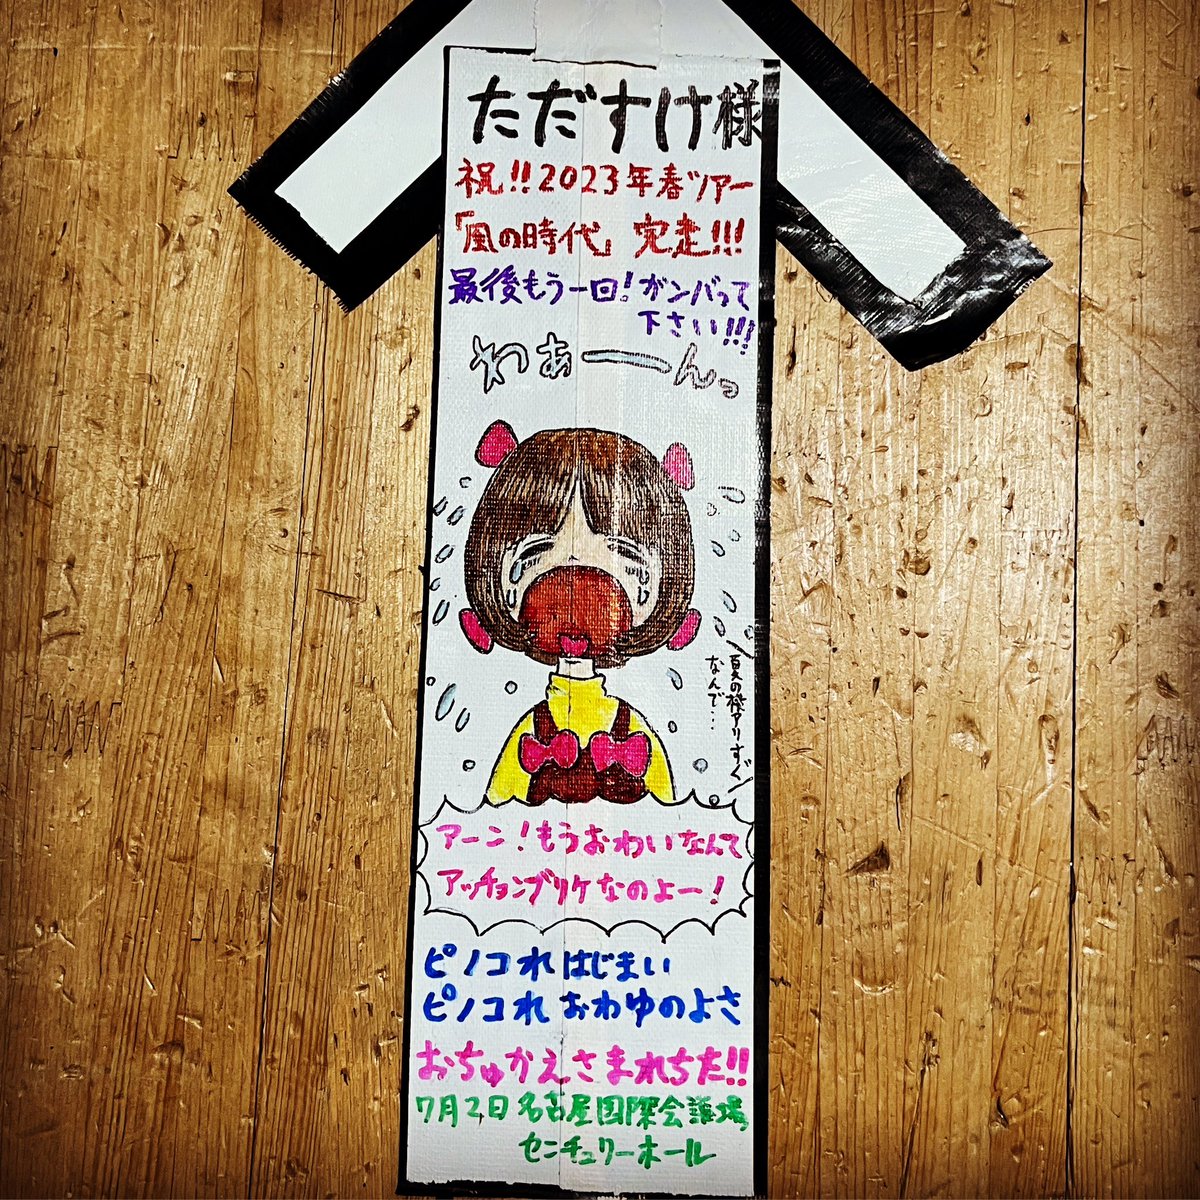 ただすけ様
祝!!2023年春ツアー
「風の時代」完走!!!
最後もう一回!ガンバって
下さい!!!
わぁーーんっ
夏の桜アリすぐ
なんで…
アーン!もうおわいなんて
アッチョンブリケなのよー!
ピノコれはじまい
ピノコれおわゆのよさ
おちゅかえさまれちた!!
7月2日名古屋国際会議場
センチュリーホール